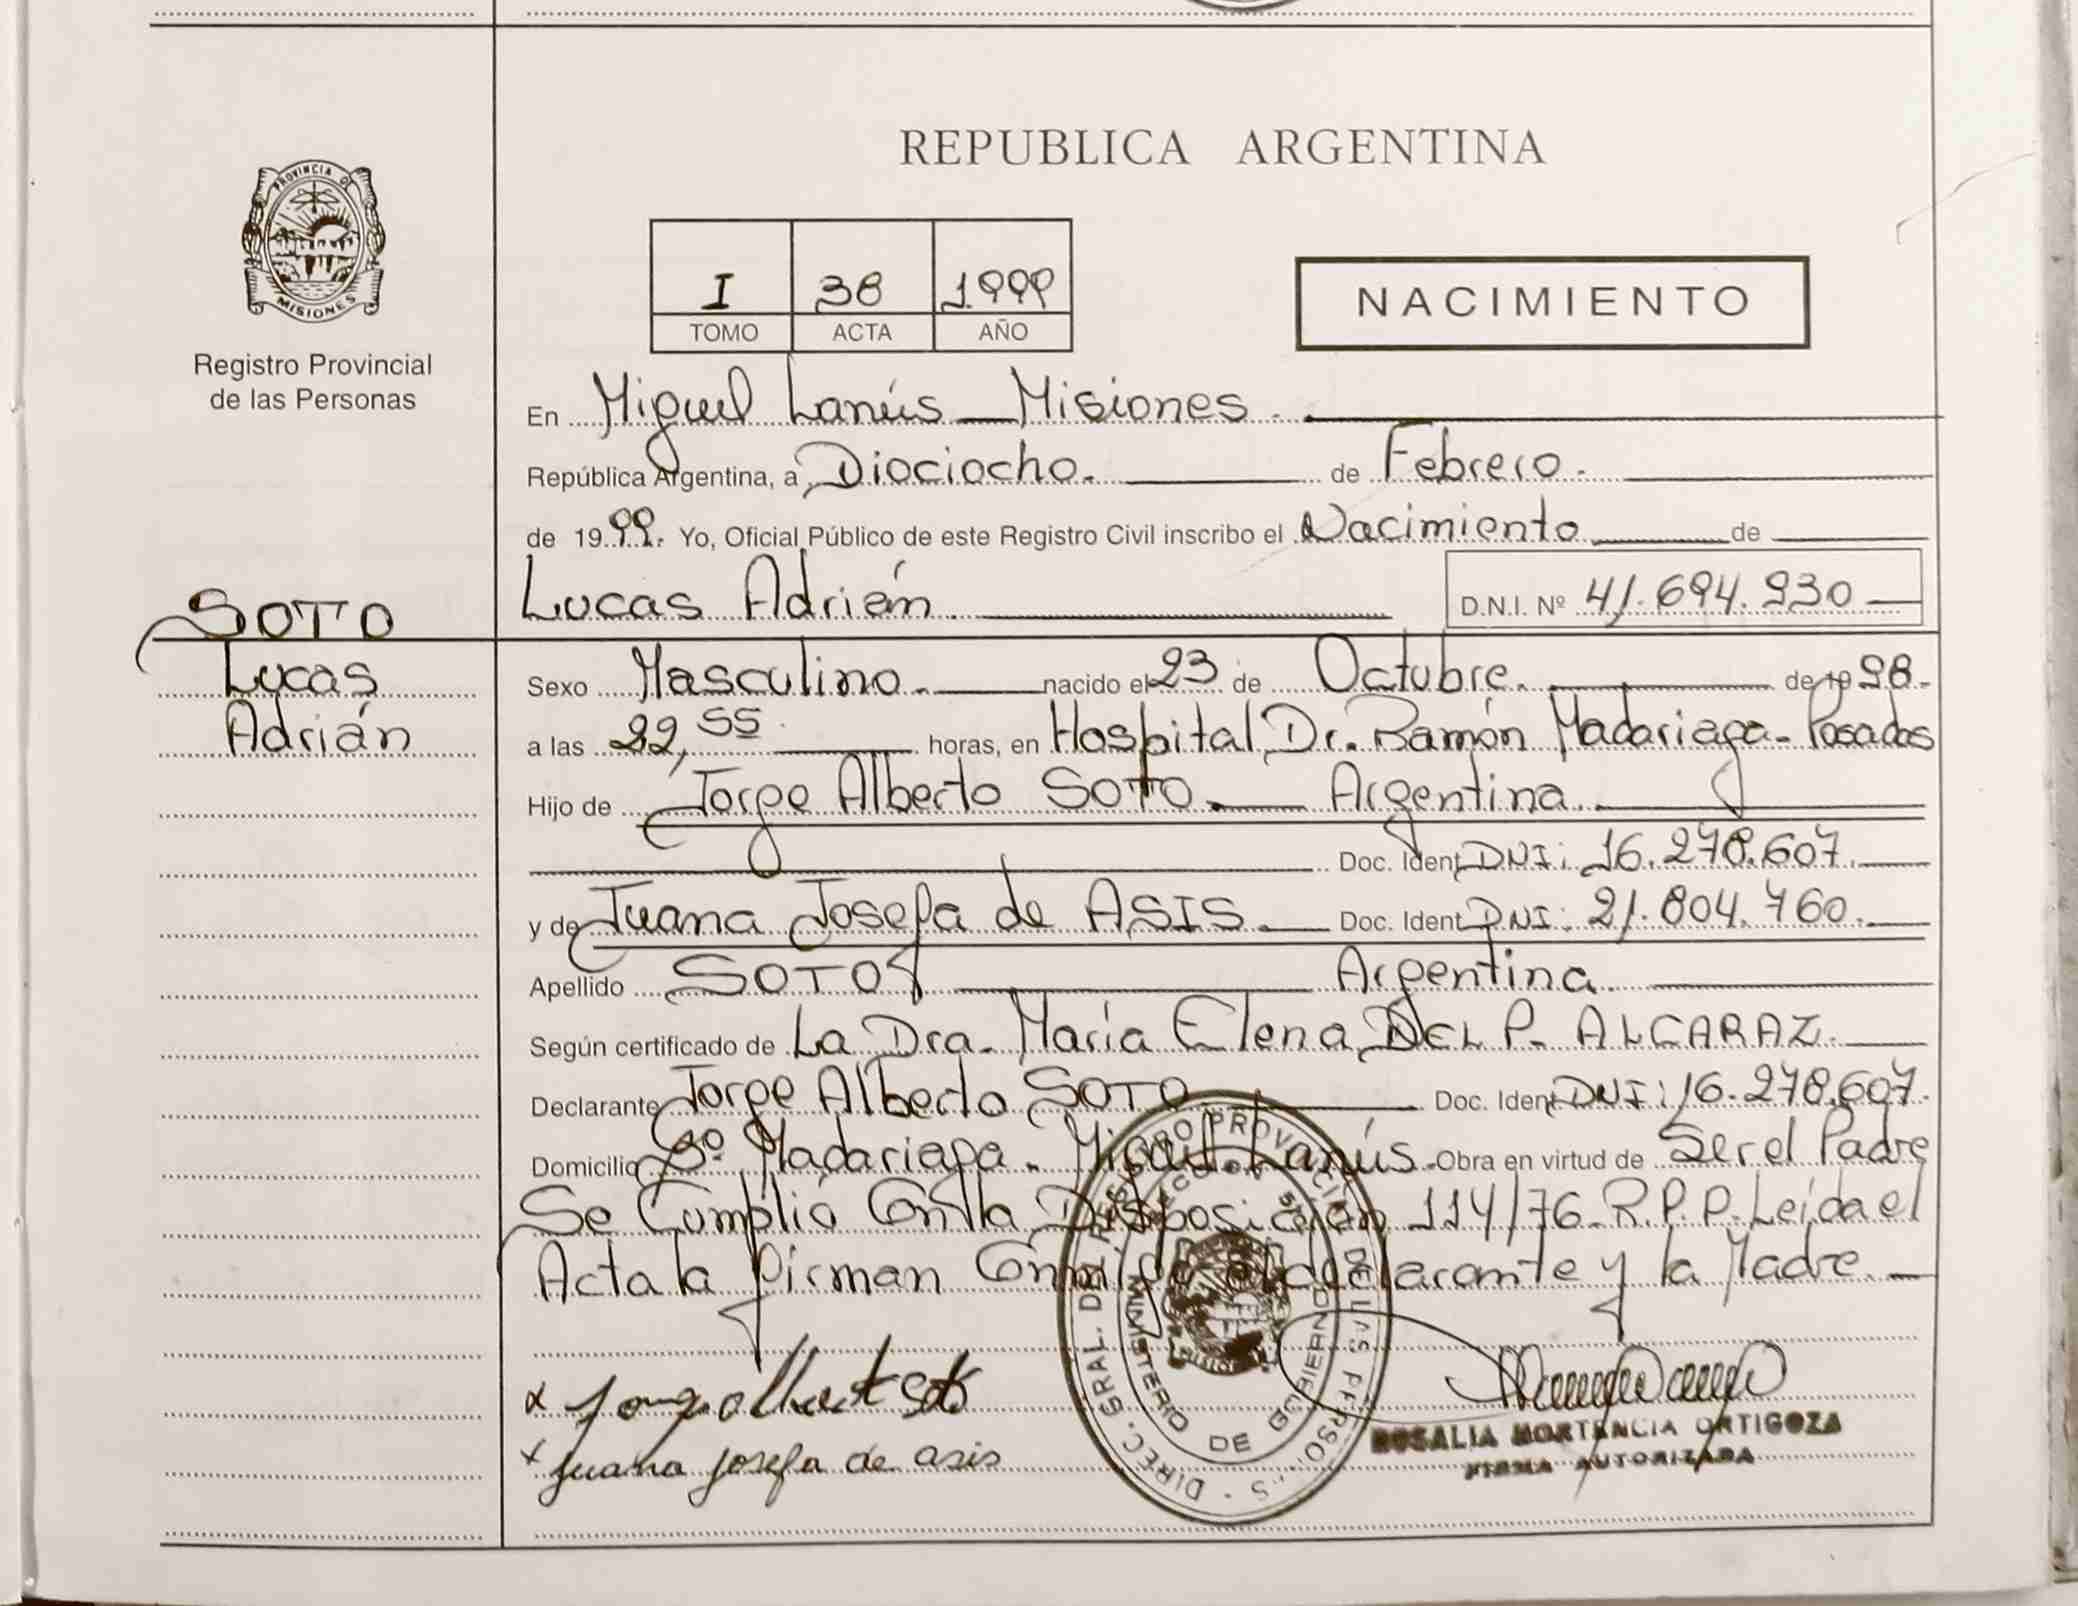 PROVINCIA DE
MISIONES
Registro Provincial
de las Personas
SOTO
Lucas
Adrián
REPUBLICA ARGENTINA
I 38 1999
TOMO ACTA AÑO
NACIMIENTO
En Miguel Lanús _ Misiones.
República Argentina, a Diociocho. de Febrero.
de 1999. Yo, Oficial Público de este Registro Civil inscribo el Nacimiento de
Lucas Adrián D.N.I. Nº 41.694.930
Sexo Masculino. nacido el 23 de Octubre. de 1998.
a las 22,55 horas, en Hospital Dr. Ramón Madariaga - Posadas
Hijo de Jorge Alberto SOTO. Argentina.
Doc. Ident. DNI: 16.278.607.
y de Juana Josefa de ASIS. Doc. Ident. DNI: 21.804.760.
Apellido SOTO Argentina.
Según certificado de La Dra. María Elena DEL P. ALCARAZ.
Declarante Jorge Alberto SOTO Doc. Ident. DNI: 16.278.607.
Domicilio Bº Madariaga - Miguel Lanús. Obra en virtud de Ser el Padre
Se Cumplió Con la Disposición 114/76 R.P.P. Leída el
Acta la firman Conmigo el declarante y la Madre.
x Jorge Albert Soto
x Juana Josefa de asis
DIREC. GRAL. DEL REGISTRO PROVINCIAL DE LAS PERSONAS
MINISTERIO DE GOBIERNO
ROSALIA HORTENCIA ORTIGOZA
FIRMA AUTORIZADA